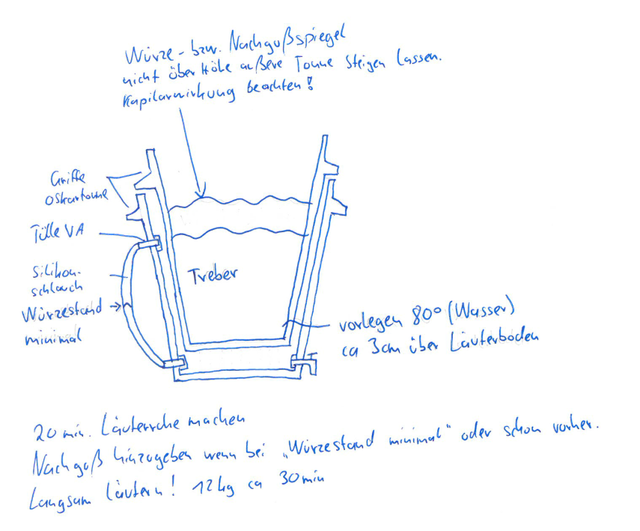 Würze- bzw. Nachgußspiegel
nicht über Höhe äußere Tonne steigen lassen.
Kapilarwirkung beachten!
Griffe
Oskartonne
Tülle VA
Silikon-
schlauch
Würzestand
minimal
Treber
vorlegen 80° (Wasser)
ca 3cm über Läuterboden
20 min. Läuterruhe machen
Nachguß hinzugeben wenn bei „Würzestand minimal“ oder schon vorher.
Langsam läutern! 12kg ca 30min